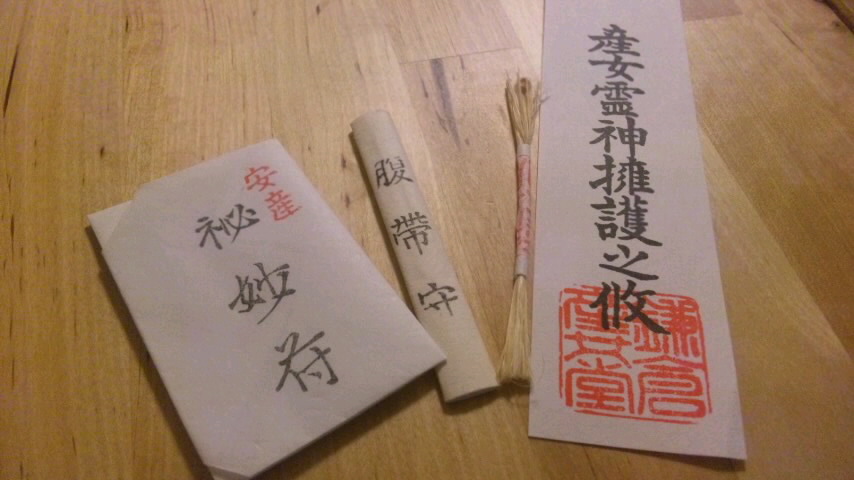 安産
祕妙符
腹帶守
産女霊神擁護之攸
鎌倉
産女堂